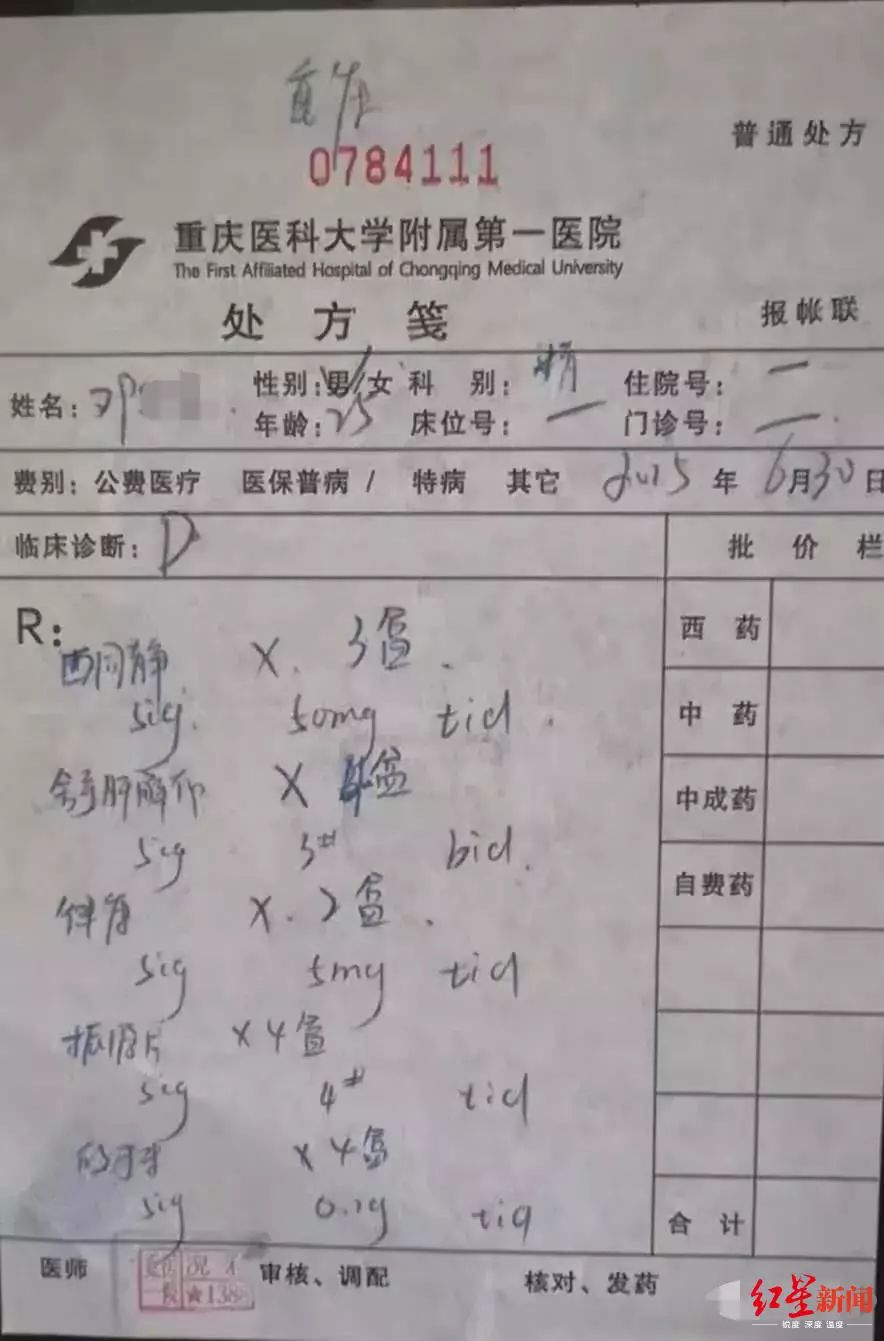 0784111
普通处方
重庆医科大学附属第一医院
The First Affiliated Hospital of Chongqing Medical University
处方笺
报帐联
姓名: 邓
性别: 男/女 科别: 住院号: 一
年龄: 25 床位号: 一 门诊号: 一
费别: 公费医疗 医保普病 / 特病 其它 2015 年 6月30日
临床诊断: D
批价栏
R:
西同静 X. 3盒.
sig. 50mg tid.
舒肝解郁 X 4盒
sig 3# bid.
X. 2盒.
sig 5mg tid
X 4盒
sig 4# tid
X 4盒
sig tid
西药
中药
中成药
自费药
合计
医师
审核、调配
核对、发药
★138
红星新闻
锐度 深度 温度